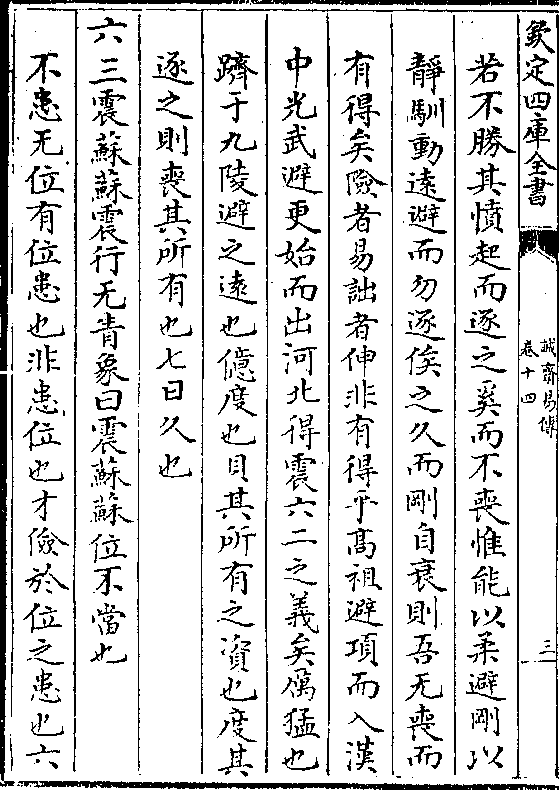 欽定四庫全書
誠齋易傳
卷十四
三
若不勝其憤起而逐之奚而不喪惟能以柔避剛以
靜馴動遠避而勿逐俟之久而剛自衰則吾无喪而
有得矣險者易詘者伸非有得乎髙祖避項而入漢
中光武避更始而出河北得震六二之義矣厲猛也
躋于九陵避之遠也億度也貝其所有之資也度其
逐之則喪其所有也七日久也
六三震蘇蘇震行无眚象曰震蘇蘇位不當也
不患无位有位患也非患位也才儉於位之患也六